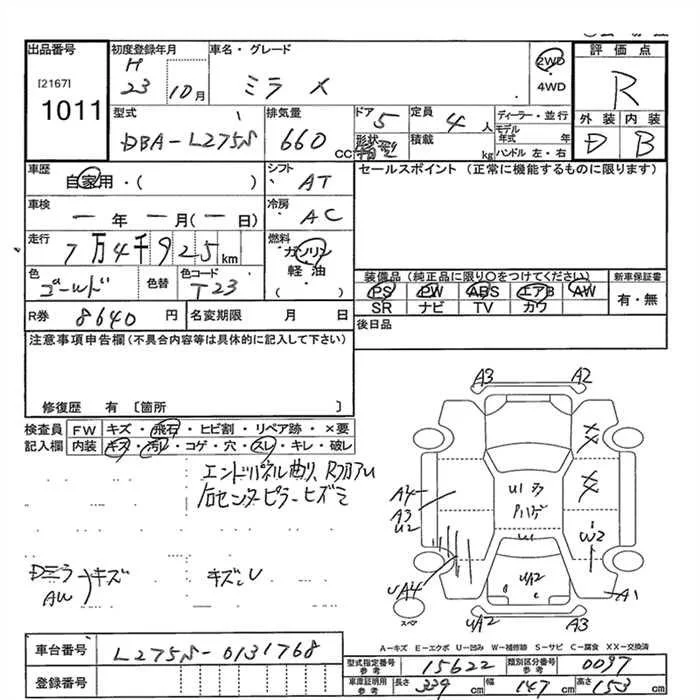 出品番号
[2167]
1011
初度登録年月
H
23 10月
車名・グレード
ミラ
2WD
4WD
評価点
R
外装 内装
D B
型式
DBA-L275S
排気量
660
CC
ドア
5
形状
定員
4人
積載
kg
ディーラー・並行
モデル年式 年
ハンドル 左・右
車歴
自家用・( )
シフト
AT
車検
年 月( 日)
冷房
AC
走行
7万4千925km
燃料
ガソリン
軽油
( )
色
ゴールド
色替
色コード
T23
R券
8640円
名変期限 月 日
セールスポイント (正常に機能するものに限ります)
装備品(純正品に限り○をつけてください)
PS PW ABS エアB AW
SR ナビ TV カワ
新車保証書
有・無
後日品
注意事項申告欄(不具合内容等は具体的に記入して下さい)
修復歴 有 〔箇所 〕
検査員
記入欄
FW キズ・飛石・ヒビ割・リペア跡・×要
内装 キズ・汚れ・コゲ・穴・スレ・キレ・破レ
エンドパネル曲り
センターピラーヒズミ
Dミラ
AW
キズ
キズ、U
A3 A2
A4
A3
U2
U1
W2
UA2
UA4
A1
UA2 A3
スペア
A-キズ E-エクボ U-凹み W-補修跡 S-サビ C-腐食 XX-交換済
車台番号
L275S-0131768
登録番号
型式指定番号 参考
15622
類別区分番号 参考
0097
車庫証明用 参考
長さ 339 cm 幅 147 cm 高さ 153 cm